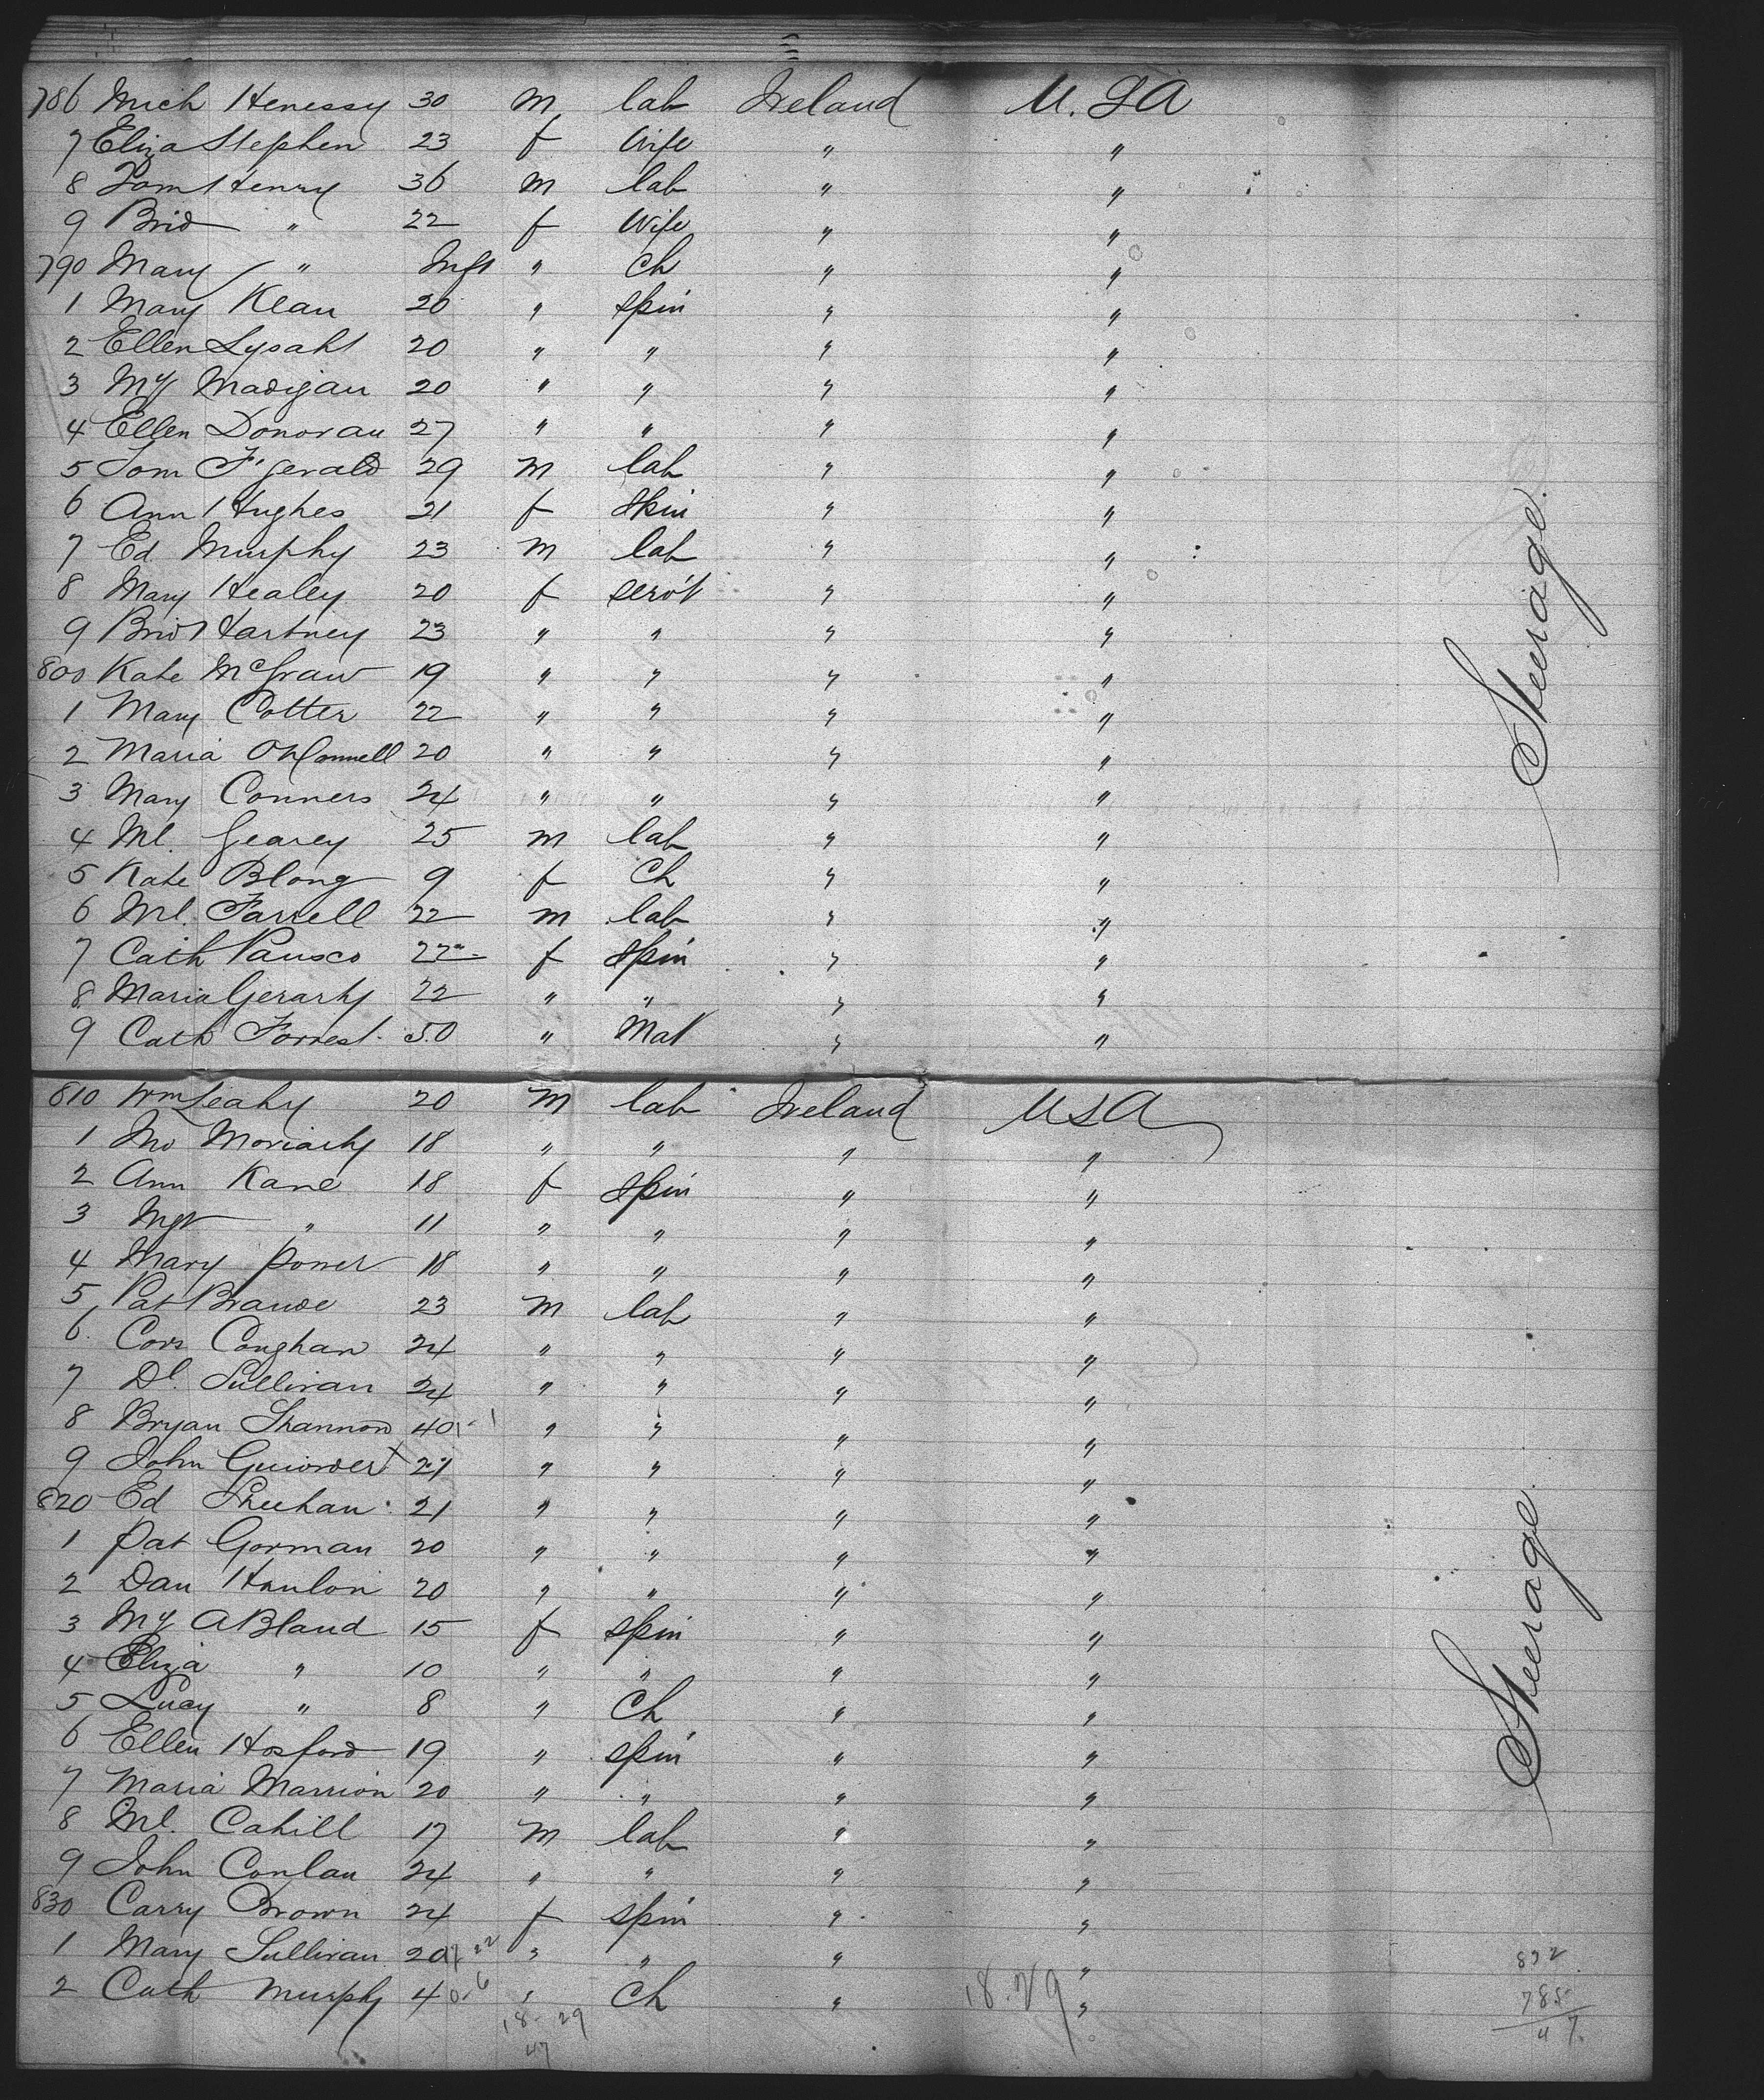 786 Mich Henessy 30 m lab Ireland U.S.A
7 Eliza Stephen 23 f Wife " "
8 Tom Henry 36 m lab " "
9 Brid " 22 f Wife " "
790 Mary " Inft " Ch " "
1 Mary Klan 20 " spin " "
2 Ellen Lysaht 20 " " " "
3 My Madigan 20 " " " "
4 Ellen Donovan 27 " " " "
5 Tom F'gerald 29 m lab " "
6 Ann Hughes 21 f Spin " "
7 Ed Murphy 23 m lab " "
8 Mary Healey 20 f serv't " "
9 Brid Hartney 23 " " " "
800 Kate McGraw 19 " " " "
1 Mary Cotter 22 " " " "
2 Maria O'Connell 20 " " " "
3 Mary Conners 24 " " " "
4 Ml. Gearey 25 m lab " "
5 Kate Blong 9 f Ch " "
6 Ml. Farrell 22 m lab " "
7 Cath 22 f spin " "
8 Maria Gerarty 22 " " " "
9 Cath Forrest 50 " Mat " "
Steerage
810 Wm Leahy 20 m lab Ireland USA
1 Jno Moriarty 18 " " " "
2 Ann Kane 18 f spin " "
3 Mgt " 11 " " " "
4 Mary Power 18 " " " "
5 Pat Brawde 23 m lab " "
6 Cors Coughan 24 " " " "
7 Dl. Sullivan 24 " " " "
8 Bryan Shannon 40 - 1 " " " "
9 John 21 " " " "
820 Ed Sheehan 21 " " " "
1 Pat Gorman 20 " " " "
2 Dan Hanlon 20 " " " "
3 My A Bland 15 f spin " "
4 Eliza " 10 " " " "
5 Lucy " 8 " Ch " "
6 Ellen Hosford 19 " spin " "
7 Maria Marrion 20 " " " "
8 Ml. Cahill 17 m lab " "
9 John Conlan 24 " " " "
830 Carry Brown 24 f spin " "
1 Mary Sullivan 20 22 " " " "
2 Cath Murphy 4 0-6 " Ch " "
Steerage
18-29
47
18.29
832
785
47